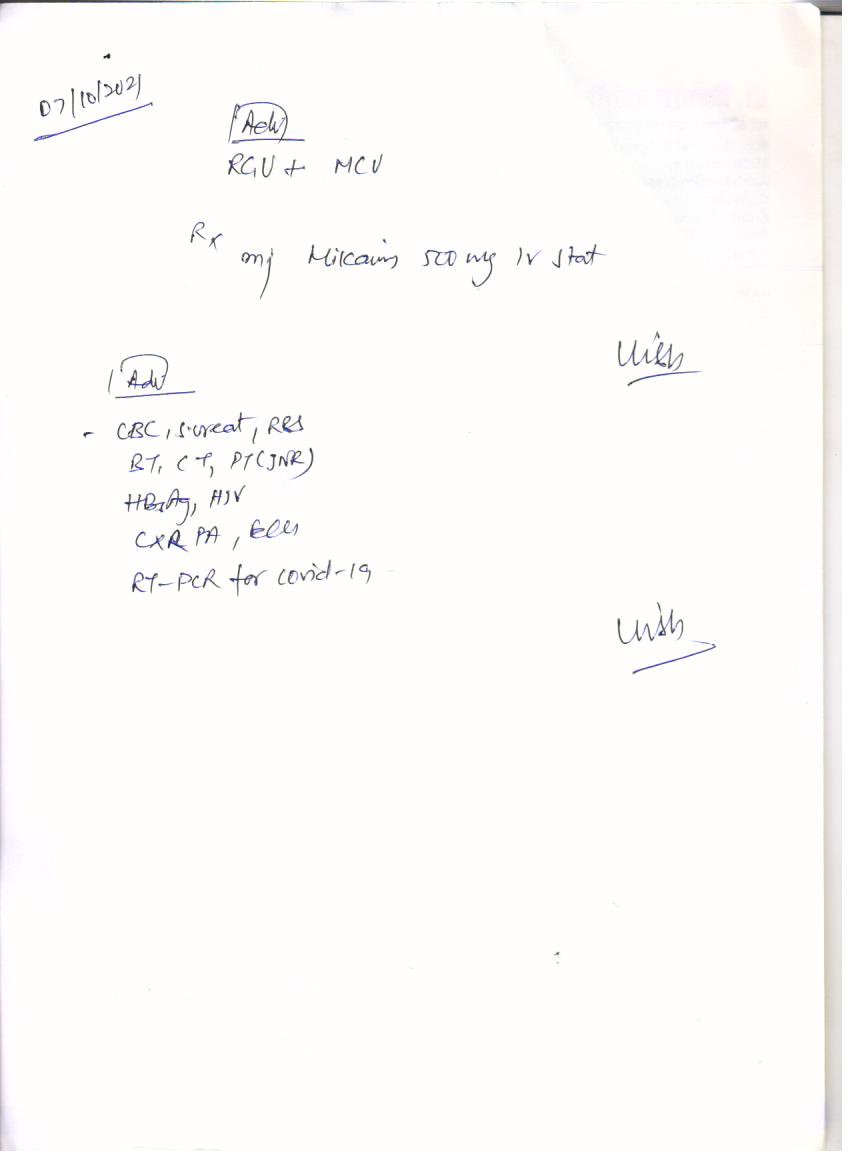 07/10/2021
Adv
RGU + MCU
Rx
inj Mikacin 500 mg IV stat
Adv
- CBC, S.creat, RBS
BT, CT, PT(INR)
HBsAg, HIV
CXR PA, ECG
RT-PCR for covid-19